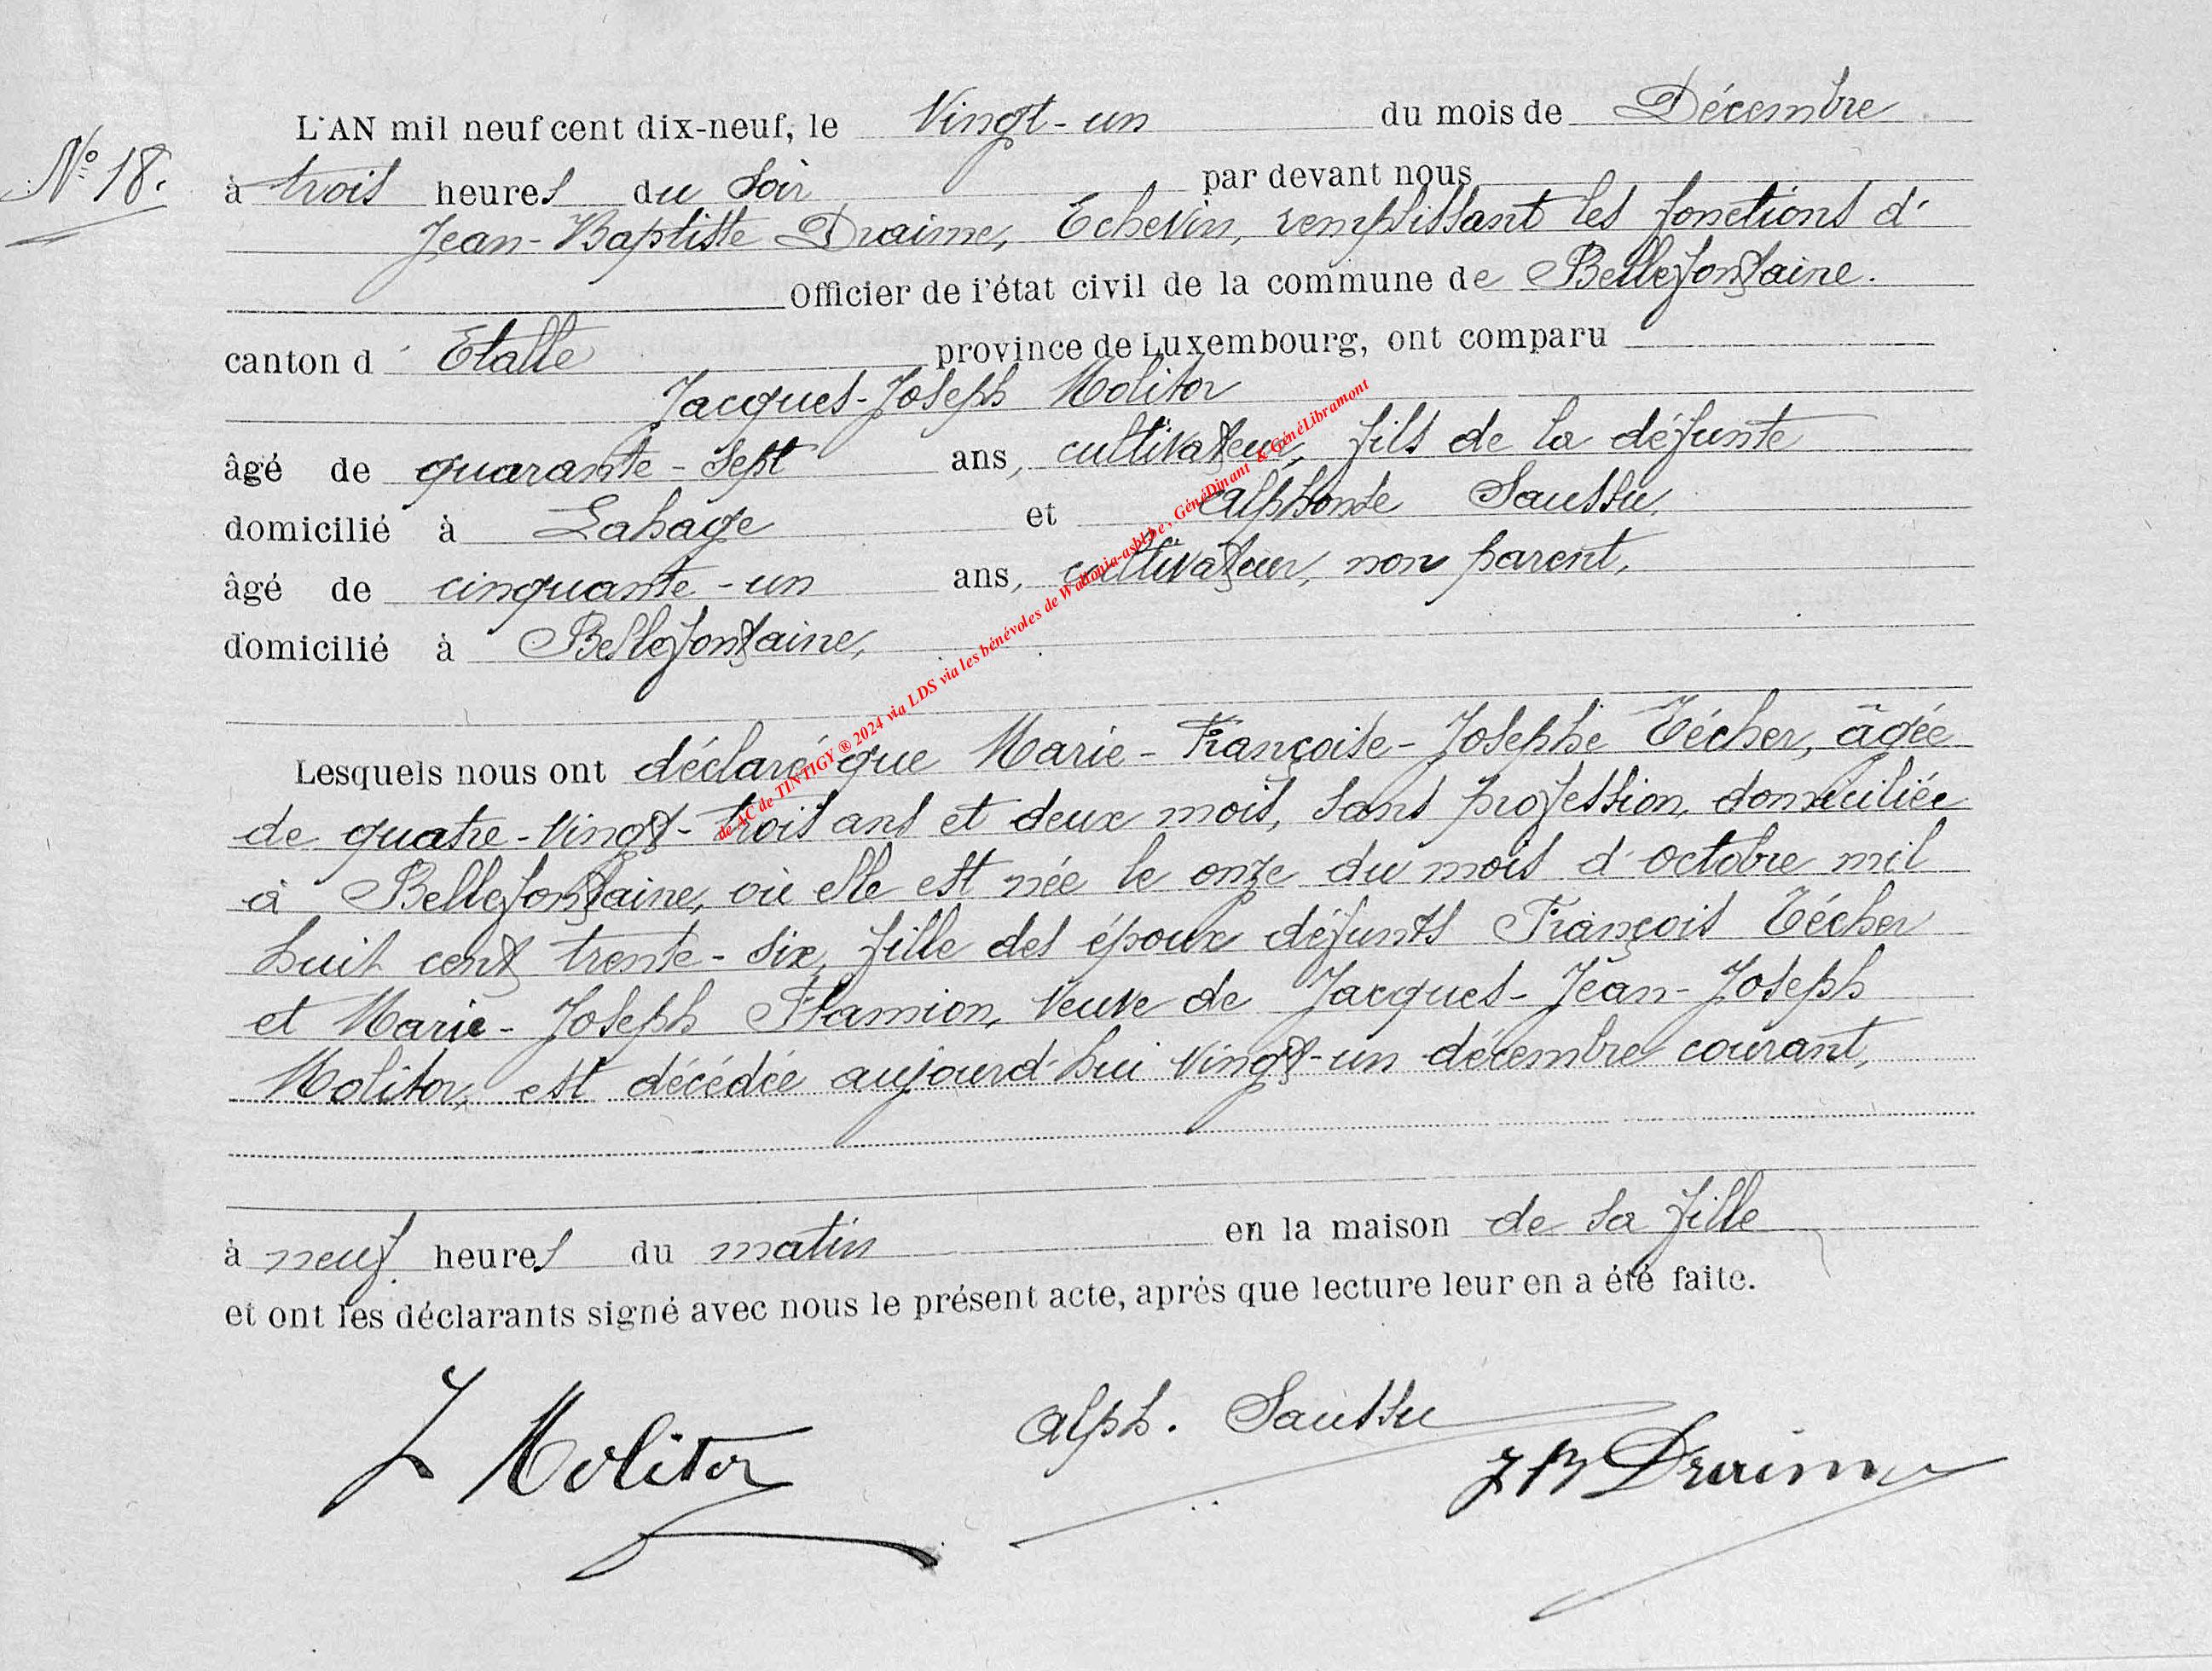 N° 18.
L'AN mil neuf cent dix-neuf, le Vingt-un du mois de Décembre
à trois heures du soir par devant nous
Jean-Baptiste Draime, Echevin, remplissant les fonctions d'
Officier de l'état civil de la commune de Bellefontaine.
canton d'Etalle province de Luxembourg, ont comparu
Jacques-Joseph Molitor
âgé de quarante-sept ans, cultivateur, fils de la défunte
domicilié à Lahage et Alphonse Saussu,
âgé de cinquante-un ans, cultivateur, non parent,
domicilié à Bellefontaine,
Lesquels nous ont déclaré que Marie-Françoise-Josephe Técher, âgée
de quatre-vingt-trois ans et deux mois, sans profession, domiciliée
à Bellefontaine, où elle est née le onze du mois d'octobre mil
huit cent trente-six, fille des époux défunts François Técher
et Marie-Joseph Flamion, veuve de Jacques-Jean-Joseph
Molitor, est décédée aujourd'hui vingt-un décembre courant,
à neuf heures du matin en la maison de sa fille
et ont les déclarants signé avec nous le présent acte, après que lecture leur en a été faite.
J Molitor
Alph. Saussu
JB Draime
de AC de TINTIGY ® 2024 via LDS via les bénévoles de Wallonia-asbl.be, GénéDinant & GénéLibramont